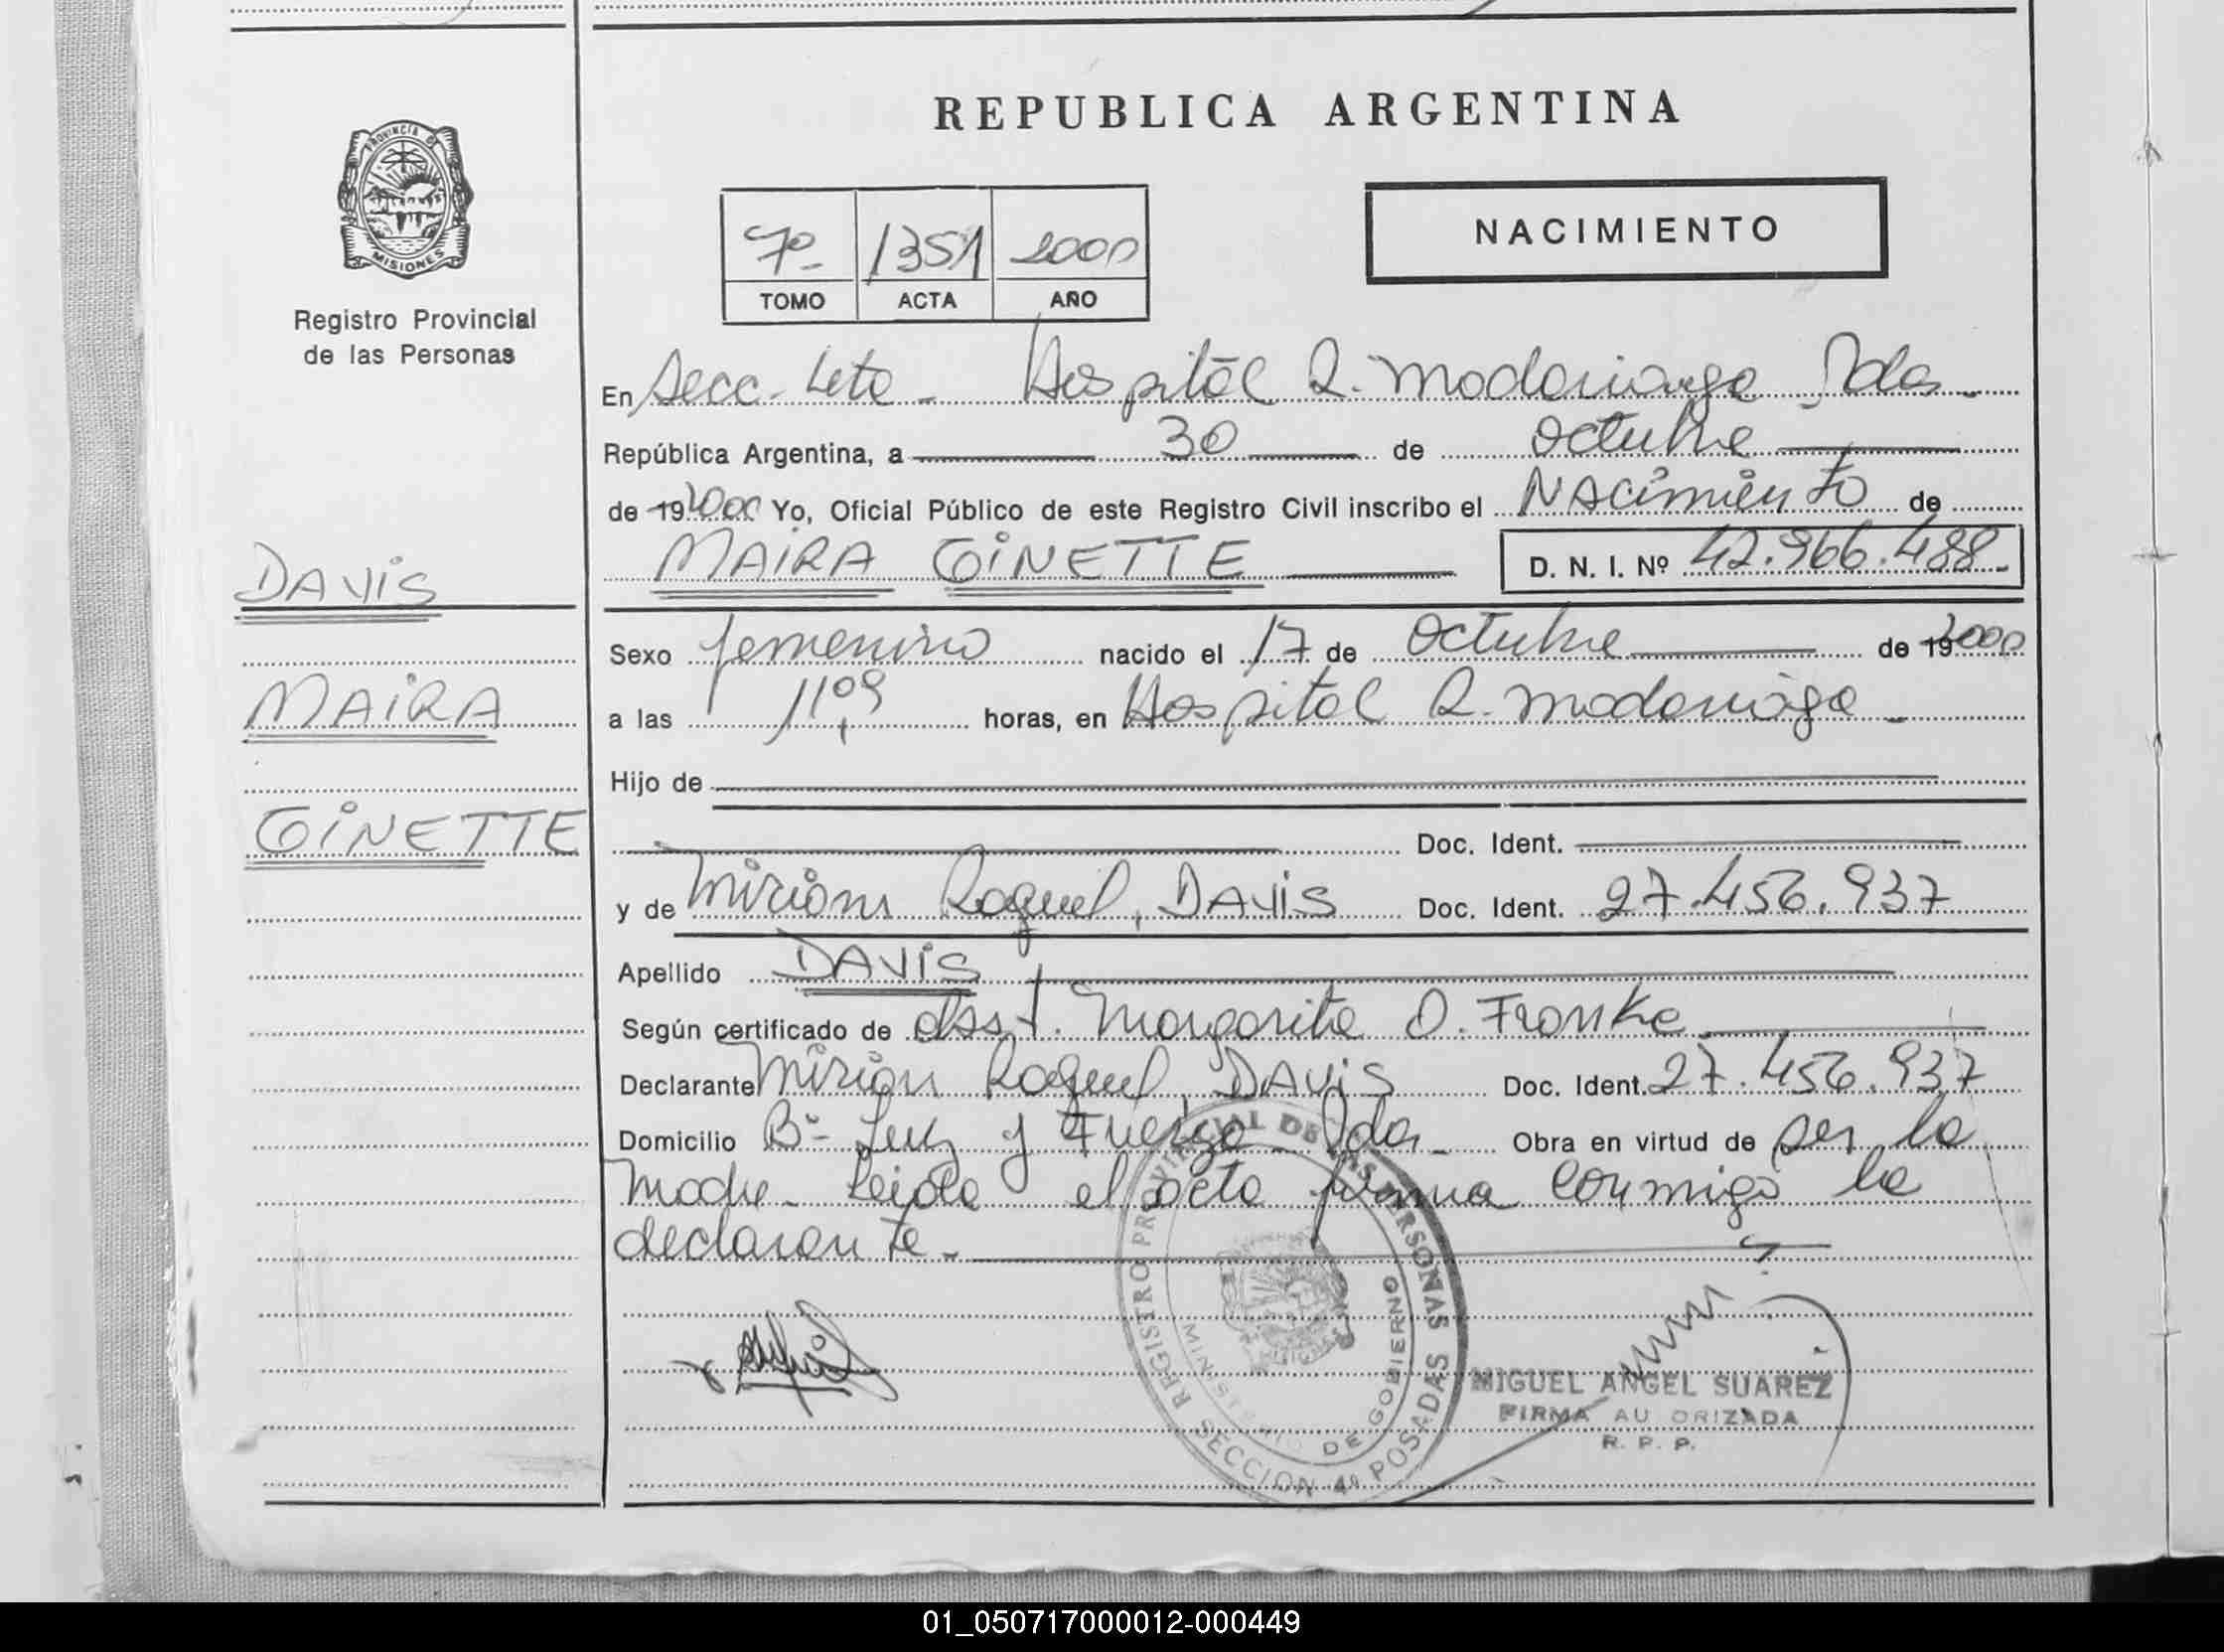 REPUBLICA ARGENTINA
PROVINCIA DE MISIONES
Registro Provincial
de las Personas
7º 1351 2000
TOMO ACTA AÑO
NACIMIENTO
En Secc. 4ta - Hospital R. Madariaga Pdas -
República Argentina, a 30 de octubre
de 19 2000 Yo, Oficial Público de este Registro Civil inscribo el NACimiento de
MAIRA GINETTE D. N. I. Nº 42.966.488-
DAVIS
MAIRA
GINETTE
Sexo femenino nacido el 17 de Octubre de 19 2000
a las 11,09 horas, en Hospital R. Madariaga -
Hijo de
Doc. Ident.
y de Miriam Raquel, DAVIS Doc. Ident. 27.456.937
Apellido DAVIS
Según certificado de Asst. Margarita O. Franke
Declarante Mirian Raquel, DAVIS Doc. Ident. 27.456.937
Domicilio Bº- Luz y Fuerza Pdas - Obra en virtud de ser la
madre - Leida el acta firma conmigo la
declarante -
REGISTRO PROVINCIAL DE LAS PERSONAS
MINISTERIO DE GOBIERNO
SECCION 4º POSADAS
MIGUEL ANGEL SUAREZ
FIRMA AU ORIZADA
R. P. P.
01_050717000012-000449